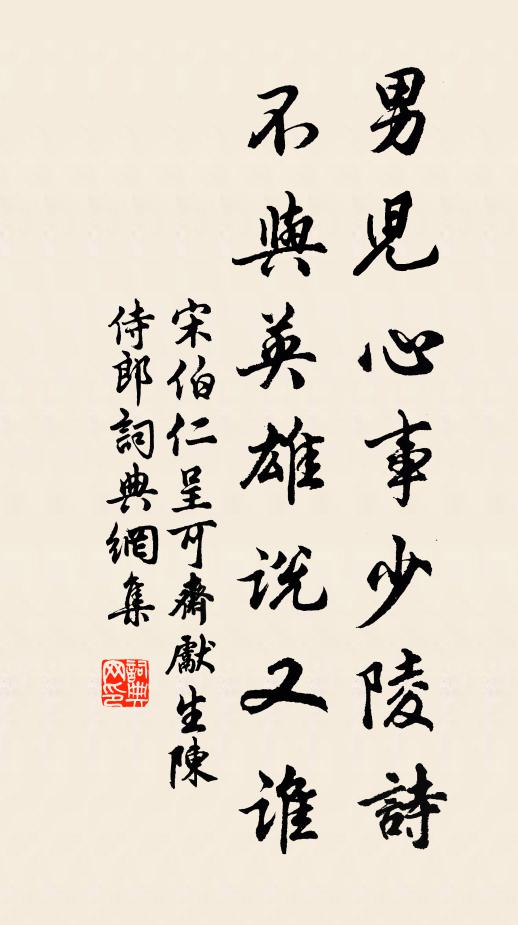 男児心事少陵詩
不與英雄説又誰
宋伯仁呈可齋獻生陳
侍郎詞典網集
詞典
网印